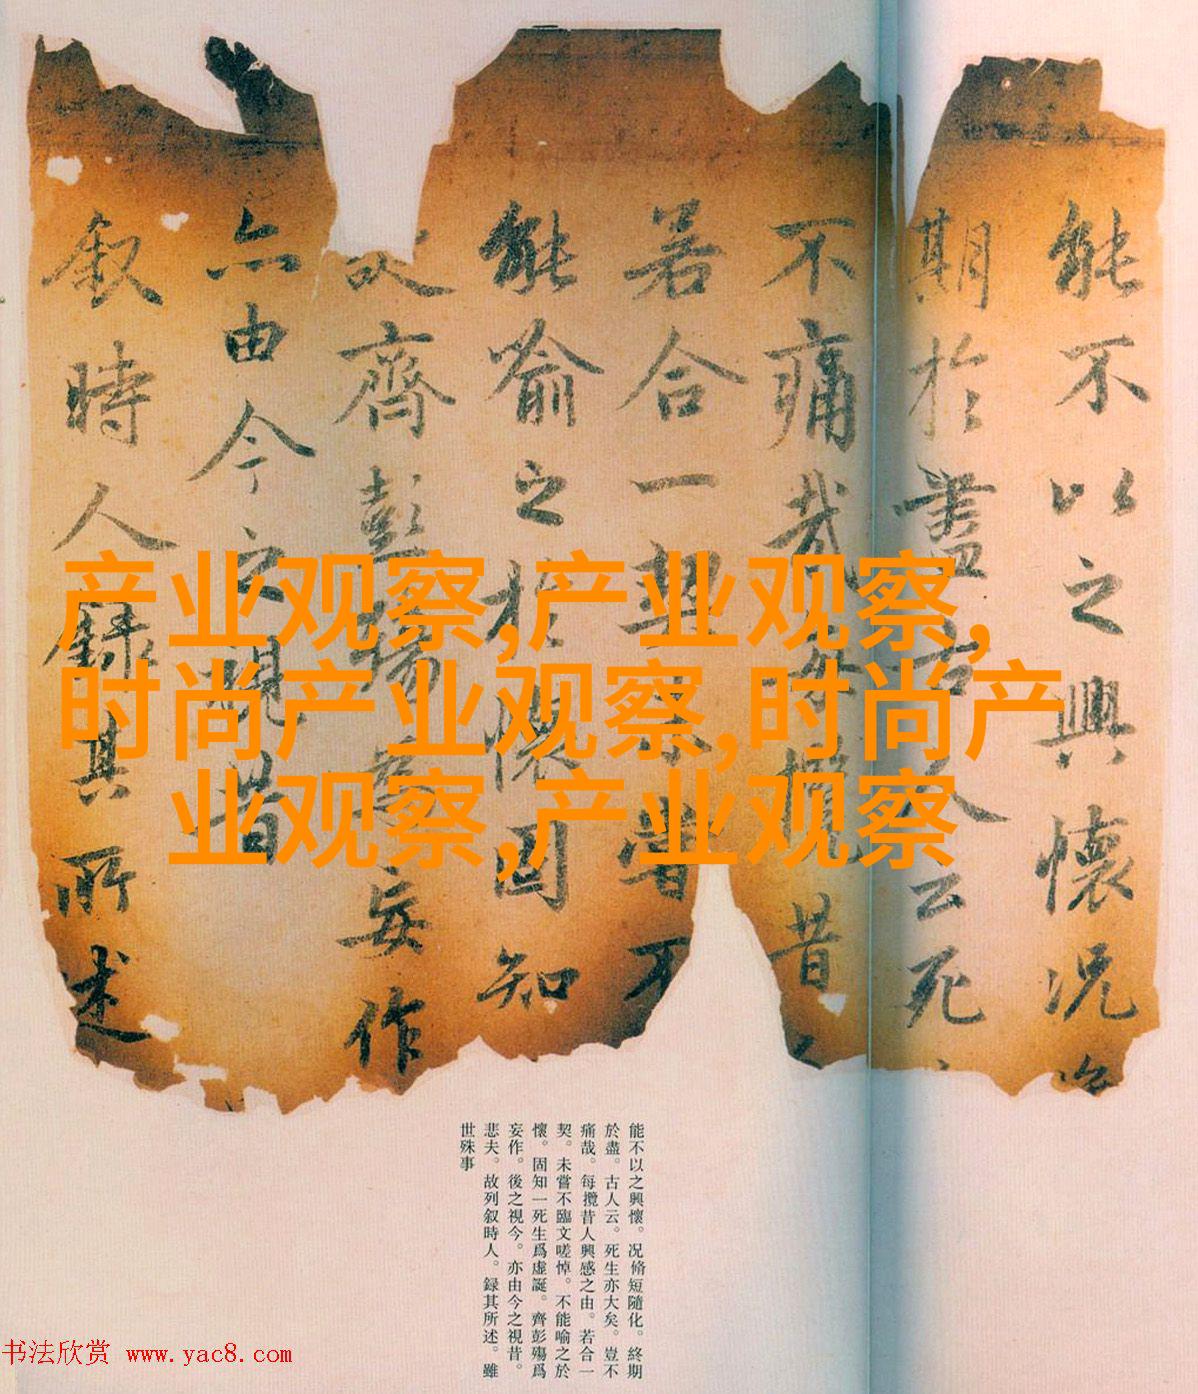 能不以之興懷况
期於盡古人云死
不痛哉每攬昔
若合一契未嘗不
能喻之於懷固知
齊彭殤為妄作
亦由今之視昔
叙時人録其所述
产业观察,产业观察,
时尚产业观察,时尚产
业观察,产业观察
能不以之興懷。况脩短隨化。終期
於盡。古人云。死生亦大矣。豈不
痛哉。每攬昔人興感之由。若合一
契。未嘗不臨文嗟悼。不能喻之於
懷。固知一死生爲虛誕。齊彭殤爲
妄作。後之視今。亦由今之視昔。
悲夫。故列叙時人。録其所述。雖
世殊事
书法欣赏 www.yac8.com